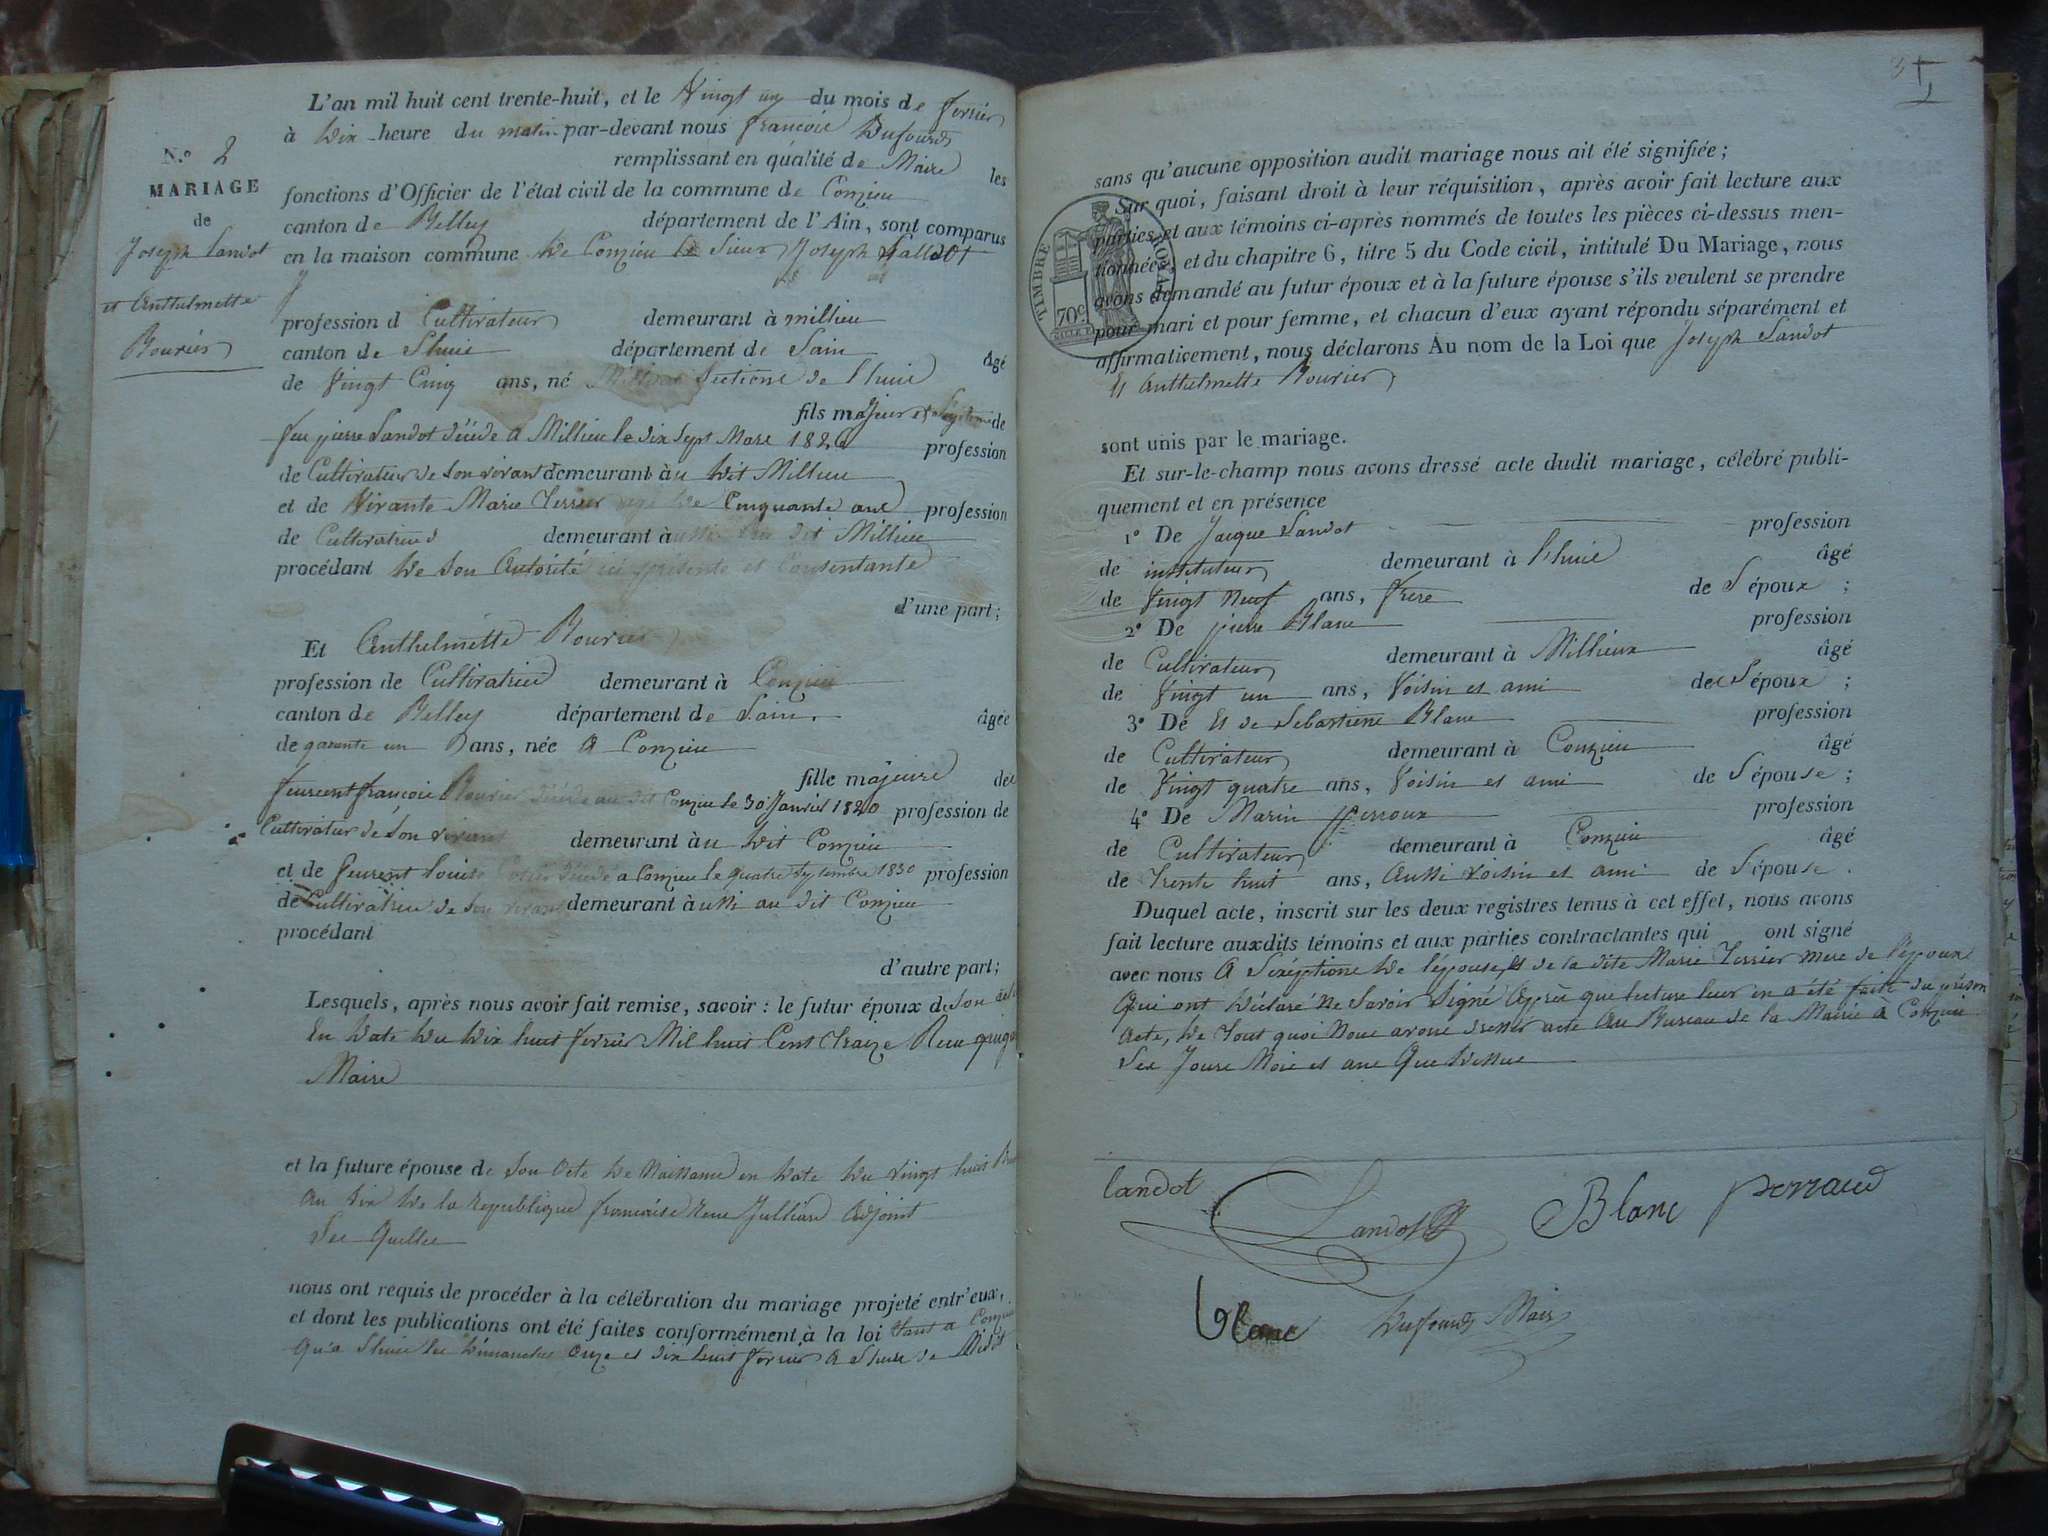 L'an mil huit cent trente-huit, et le Vingt un du mois de fevrier
à Dix heure du matin par-devant nous françois Dufourd
N.º 2
remplissant en qualité de Maire les
MARIAGE
fonctions d'Officier de l'état civil de la commune de Conzieu
de
canton de Belley département de l'Ain, sont comparus
Joseph Landot
en la maison commune De Conzieu le Sieur Joseph Landot
et Anthelmette
profession d Cultivateur demeurant à millieu
Bouvier
canton de Lhuis département de Lain âgé
de Vingt Cinq ans, né Sectione de Lhuis
fils majeur et Legitime de
feu pierre Landot décédé a Millieu le dix Sept Mars 1826 profession
de Cultivateur de Son vivant demeurant àu Dit Millieu
et de Vivante Marie Terrier agé de Cinquante ans profession
de Cultivatrice demeurant àussi au dit Millieu
procédant De Son Autorité ici présente et Consentante
d'une part;
Et Anthelmette Bouvier
profession de Cultivatrice demeurant à Conzieu
canton de Belley département de Lain. âgée
de quarante un ans, née A Conzieu
fille majeure de
feurent françois Bouvier décédé au dit Conzieu le 30 Janvier 1820 profession de
Cultivateur de Son vivant demeurant àu Dit Conzieu
et de feurent Louise décédé a Conzieu le quatre Septembre 1830 profession
de Cultivatrice de Son vivant demeurant àussi au dit Conzieu
procédant
d'autre part;
Lesquels, après nous avoir fait remise, savoir: le futur époux de Son acte
En Date Du Dix huit fevrier Mil huit Cent Traize
Maire
et la future épouse de Son Acte De Naissance en Date Du vingt huit
An Dix De la Republique francaise Julliard Adjoint
Les Quelles
nous ont requis de procéder à la célébration du mariage projeté entr'eux,
et dont les publications ont été faites conformément à la loi tant a Conzieu
Qu'a Lhuis les Dimanches Onze et dix huit fevrier A Lheure de Midit
3
sans qu'aucune opposition audit mariage nous ait été signifiée;
Sur quoi, faisant droit à leur réquisition, après avoir fait lecture aux
parties et aux témoins ci-après nommés de toutes les pièces ci-dessus men-
tionnées, et du chapitre 6, titre 5 du Code civil, intitulé Du Mariage, nous
avons demandé au futur époux et à la future épouse s'ils veulent se prendre
pour mari et pour femme, et chacun d'eux ayant répondu séparément et
affirmativement, nous déclarons Au nom de la Loi que Joseph Landot
Et Anthelmette Bouvier
TIMBRE ROYAL
70c
sont unis par le mariage.
Et sur-le-champ nous avons dressé acte dudit mariage, célébré publi-
quement et en présence
1º De Jacque Landot profession
de instituteur demeurant à Lhuis âgé
de Vingt Neuf ans, frere de Lépoux ;
2º De pierre Blanc profession
de Cultivateur demeurant à Millieux âgé
de Vingt un ans, Voisin et ami de Lépoux ;
3º De Et de Sebastiene Blanc profession
de Cultivateur demeurant à Conzieu âgé
de Vingt quatre ans, Voisin et ami de Lépouse ;
4º De Marin perroux profession
de Cultivateur demeurant à Conzieu âgé
de Trente huit ans, Aussi voisin et ami de Lépouse .
Duquel acte, inscrit sur les deux registres tenus à cet effet, nous avons
fait lecture auxdits témoins et aux parties contractantes qui ont signé
avec nous A Lexéptione De lépouse, Et de la dite Marie Terrier mere de lépoux
Qui ont Déclaré Ne Savoir Signé Apprès que lecture leur en a été faite du présent
Acte, De Tout quoi Nous avons dressé acte Au Bureau de la Mairie à Conzieu
Les Jours Mois et ans Que Dessus
landot Landot Blanc perraud
blanc Dufourd Maire